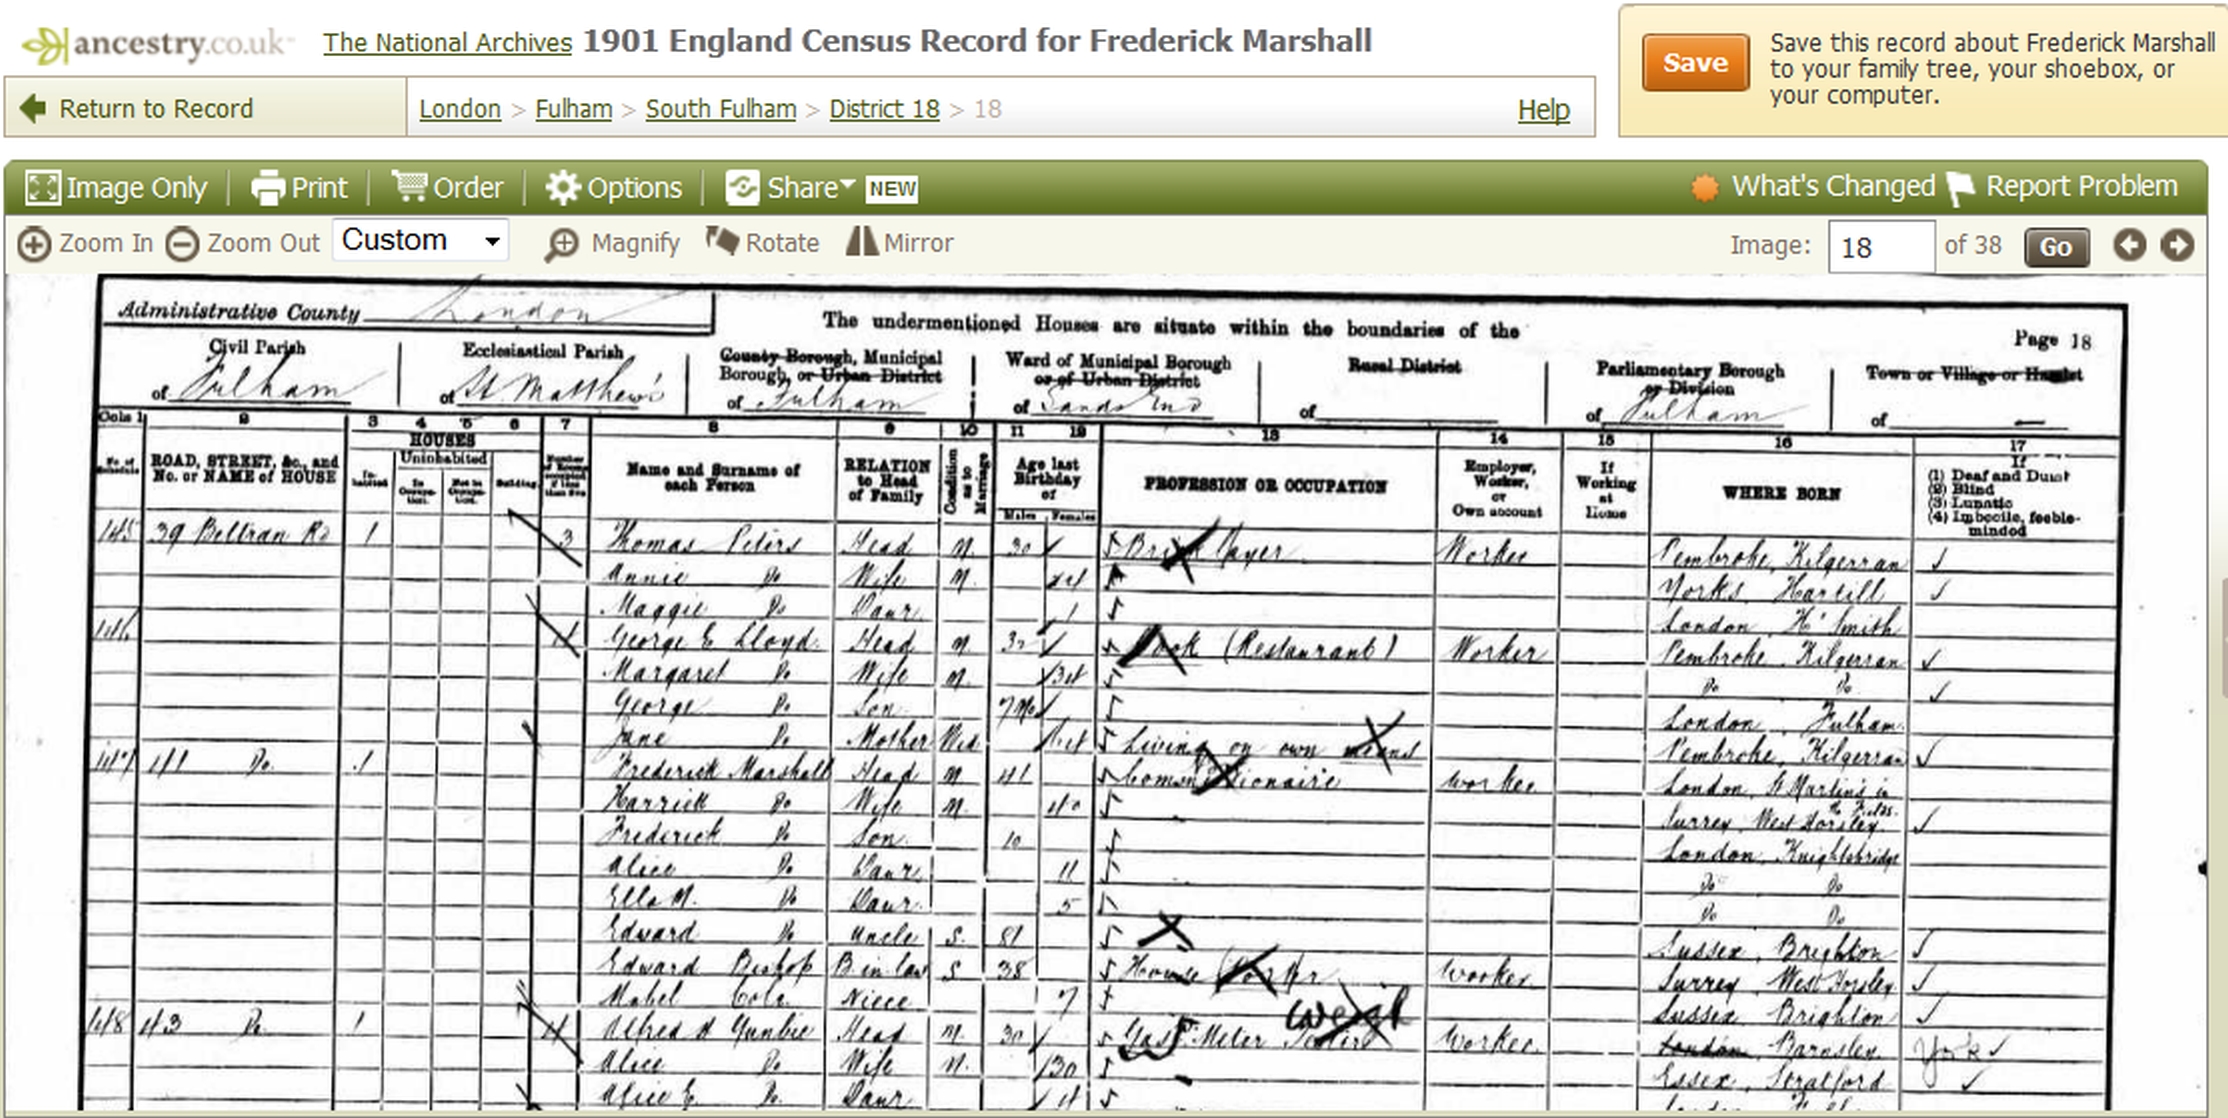 ancestry.co.uk The National Archives 1901 England Census Record for Frederick Marshall
Save
Save this record about Frederick Marshall
to your family tree, your shoebox, or
your computer.
Return to Record
London > Fulham > South Fulham > District 18 > 18
Help
Image Only Print Order Options Share NEW What's Changed Report Problem
Zoom In Zoom Out Custom Magnify Rotate Mirror Image: 18 of 38 Go
Administrative County London
The undermentioned Houses are situate within the boundaries of the
Page 18
Civil Parish
of Fulham
Ecclesiastical Parish
of St. Matthew's
County Borough, Municipal
Borough, or Urban District
of Fulham
Ward of Municipal Borough
or of Urban District
of Sands End
Rural District
of
Parliamentary Borough
or Division
of Fulham
Town or Village or Hamlet
of —
Cols 1 2 3 4 5 6 7 8 9 10 11 12 13 14 15 16 17
No. of Schedule
ROAD, STREET, &c., and
No. or NAME of HOUSE
HOUSES
Inhabited
Uninhabited
In Occupation.
Not in Occupation.
Building
Number of Rooms occupied if less than five
Name and Surname of
each Person
RELATION
to Head
of Family
Condition as to Marriage
Age last
Birthday
of
Males Females
PROFESSION OR OCCUPATION
Employer,
Worker,
or
Own account
If
Working
at
Home
WHERE BORN
If
(1) Deaf and Dumb
(2) Blind
(3) Lunatic
(4) Imbecile, feeble-
minded
145 39 Beltran Rd 1 3 Thomas Peters Head M. 30 Bricklayer Worker Pembroke, Kilgerran
Annie Do Wife M. 24 Yorks
Maggie Do Daur. 1 London, H'Smith
146 4 George E Lloyd Head M. 32 Cook (Restaurant) Worker Pembroke, Kilgerran
Margaret Do Wife M. 34 Do Do
George Do Son 7 Mo London, Fulham
Jane Do Mother Wid Living on own means Pembroke, Kilgerran
147 41 Do. 1 Frederick Marshall Head M 41 Commissionaire Worker London, St Martins in the Fields
Harriett Do Wife M. 40 Surrey, West Horsley
Frederick Do Son 10 London, Knightsbridge
Alice Do Daur. 11 Do Do
Ella M. Do Daur. 5 Do Do
Edward Do Uncle S. 81 Sussex, Brighton
Edward Bishop B in law S 38 House Porter Worker Surrey, West Horsley
Mabel Cole Niece 7 Sussex, Brighton
148 43 Do. 1 4 Alfred Head M. 30 Gas Meter Worker London, Barnsley York
Alice Do Wife M. 30 Essex, Stratford
Alice E. Do. Daur. 4 London